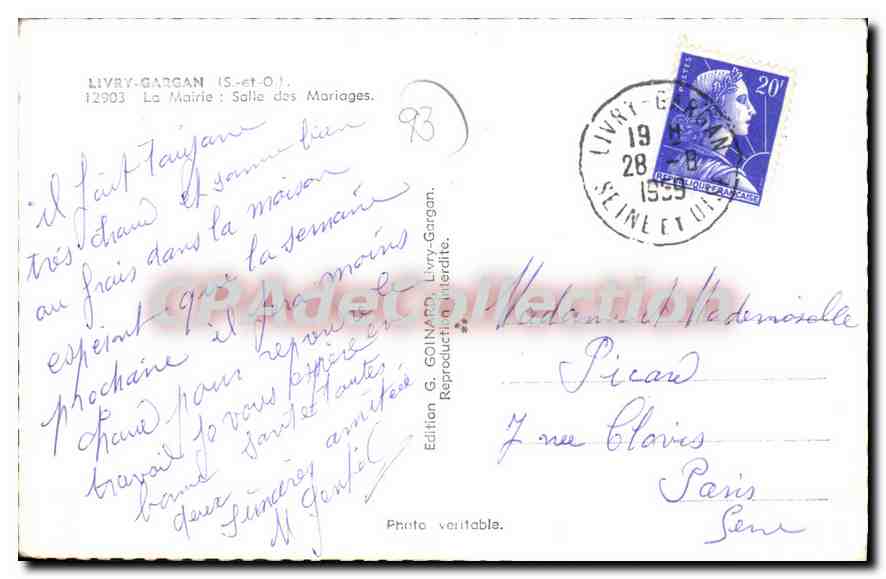 LIVRY-GARGAN (S.-et-O.).
12903 La Mairie : Salle des Mariages.
93
il fait toujours
très chaud et somme bien
au frais dans la maison
espéront que la semaine
prochaine il fra moins
chaud pour reprendre le
travail je vous espère en
bonne santé toutes
deux
sincères amitiée
M
Edition G. GOINARD, Livry-Gargan.
Reproduction interdite.
Photo véritable.
POSTES
20F
REPUBLIQUE FRANCAISE
LIVRY-GARGAN
19 H
28 - 8
1959
SEINE ET OISE
CPAdeCollection
Madame et Mademoiselle
Picard
7 rue Clovis
Paris
Seine